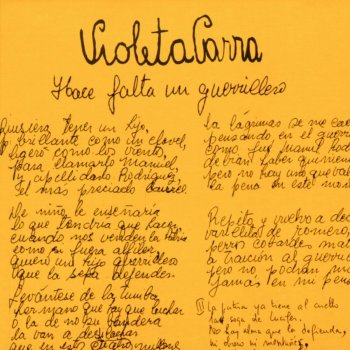 Violeta Parra
Hace falta un guerrillero
Quisiera tener un hijo
brillante como un clavel,
ligero como los vientos,
para llamarlo Manuel
y apellidado Rodríguez
el más preciado laurel
De niño le enseñaría
lo que tendría que hacer
cuando nos venden la Patria
como si fuera alfiler
quiero un hijo guerrillero
que la sepa defender.
Levántese de la tumba
hermano que hay que luchar
o la de no su bandera
la van a
que en
La lágrimas se me cae
pensando en el guerr
como fue Manuel Rodr
debían haber quiniento
pero no hay uno que val
la pena en este mom
Repito y vuelvo a deci
varillitas de romero,
perros cobardes mata
a traición al guerri
pero no podrán ma
jamás en mi pens
III La patria ya tiene al cuello
la soga de Lucifer.
No hay alma que la defienda,
ni obrero ni montañés,